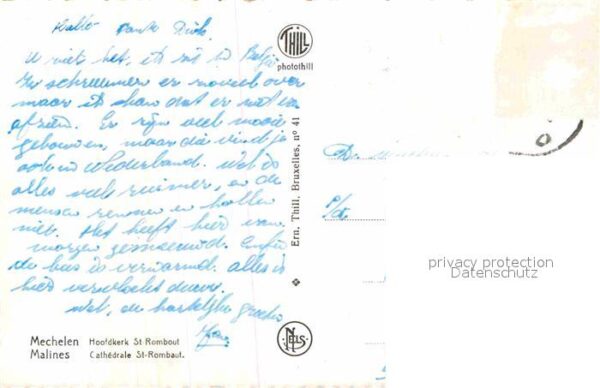 Hallo Tante Dirk.
U ziet het, ik zit in België
Ze schreeuwen er zoveel over
maar ik
af zien. Er zijn veel mooie
gebouwen, maar die vind je
ook in Nederland. Wel is
alles veel ruimer, en de
mensen rennen en hollen
niet. Het heeft hier van
morgen gesneeuwd. Enfin
de bus is verwarmd. alles is
hier verschrikkelijk duur.
Wel, de hartelijke groeten
Mechelen Hoofdkerk St Rombout
Malines Cathédrale St-Rombaut.
THILL
photothill
Ern. Thill, Bruxelles, nº 41
NELS
privacy protection
Datenschutz